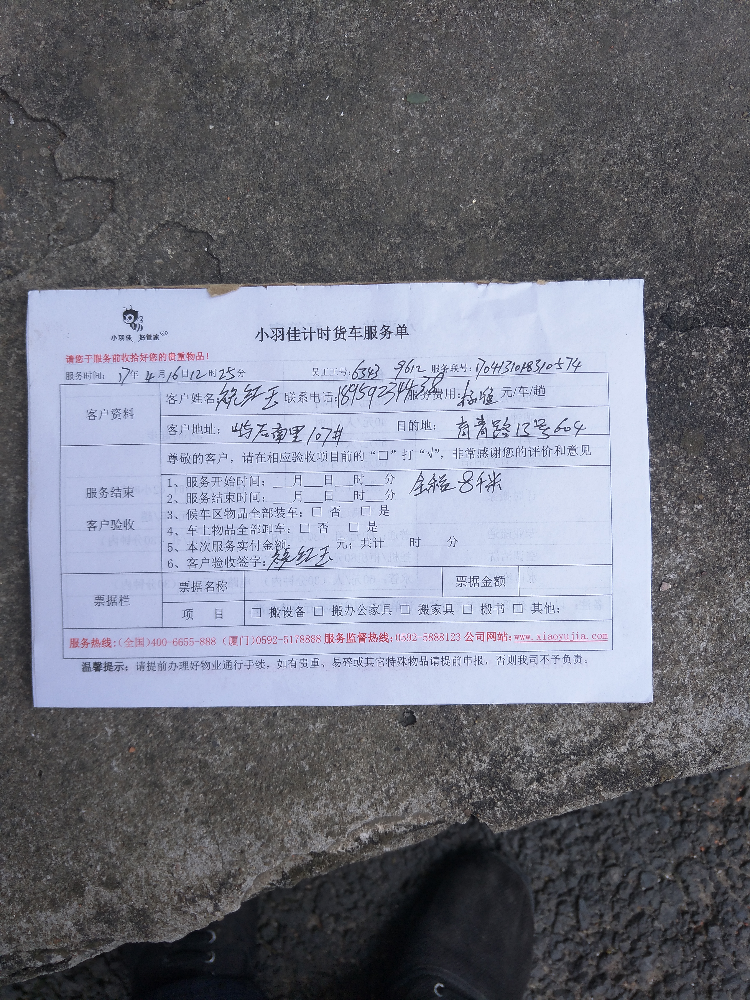 小羽佳 庭管家
小羽佳计时货车服务单
请您于服务前收拾好您的贵重物品!
服务时间: 17年4月16日12时25分 员工工号:6343 962 服务单号:1704131018310574
客户资料
客户姓名: 红玉 联系电话: 服务费用: 元/车/趟
客户地址: 屿后南里107# 目的地: 育青路13号604
尊敬的客户，请在相应验收项目前的“□”打“√”，非常感谢您的评价和意见
服务结束
客户验收
1、服务开始时间:__月__日__时__分 全程8千米
2、服务结束时间:__月__日__时__分
3、候车区物品全部装车: □ 否 □ 是
4、车上物品全部卸车: □ 否 □ 是
5、本次服务实付金额: 元; 共计 时 分
6、客户验收签字: 红玉
票据栏
票据名称 票据金额
项 目 □ 搬设备 □ 搬办公家具 □ 搬家具 □ 搬书 □ 其他:
服务热线:(全国)400-6655-888 (厦门)0592-5178888 服务监督热线:0592-5888123 公司网站:www.xiaoyujia.com
温馨提示: 请提前办理好物业通行手续，如有贵重、易碎或其它特殊物品请提前申报，否则我司不予负责。